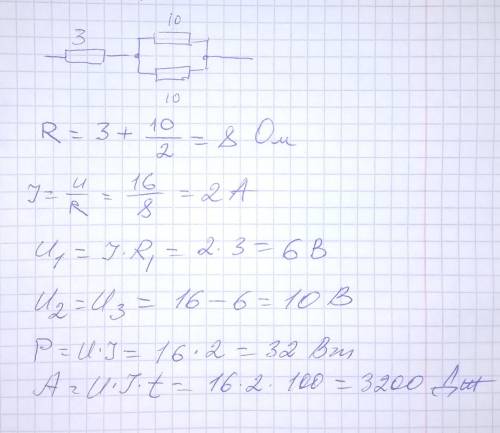 3
10
10
R = 3 + 10/2 = 8 Ом
I = U/R = 16/8 = 2 А
U₁ = I·R₁ = 2·3 = 6 В
U₂ = U₃ = 16 - 6 = 10 В
P = U·I = 16·2 = 32 Вт
A = U·I·t = 16·2·100 = 3200 Дж